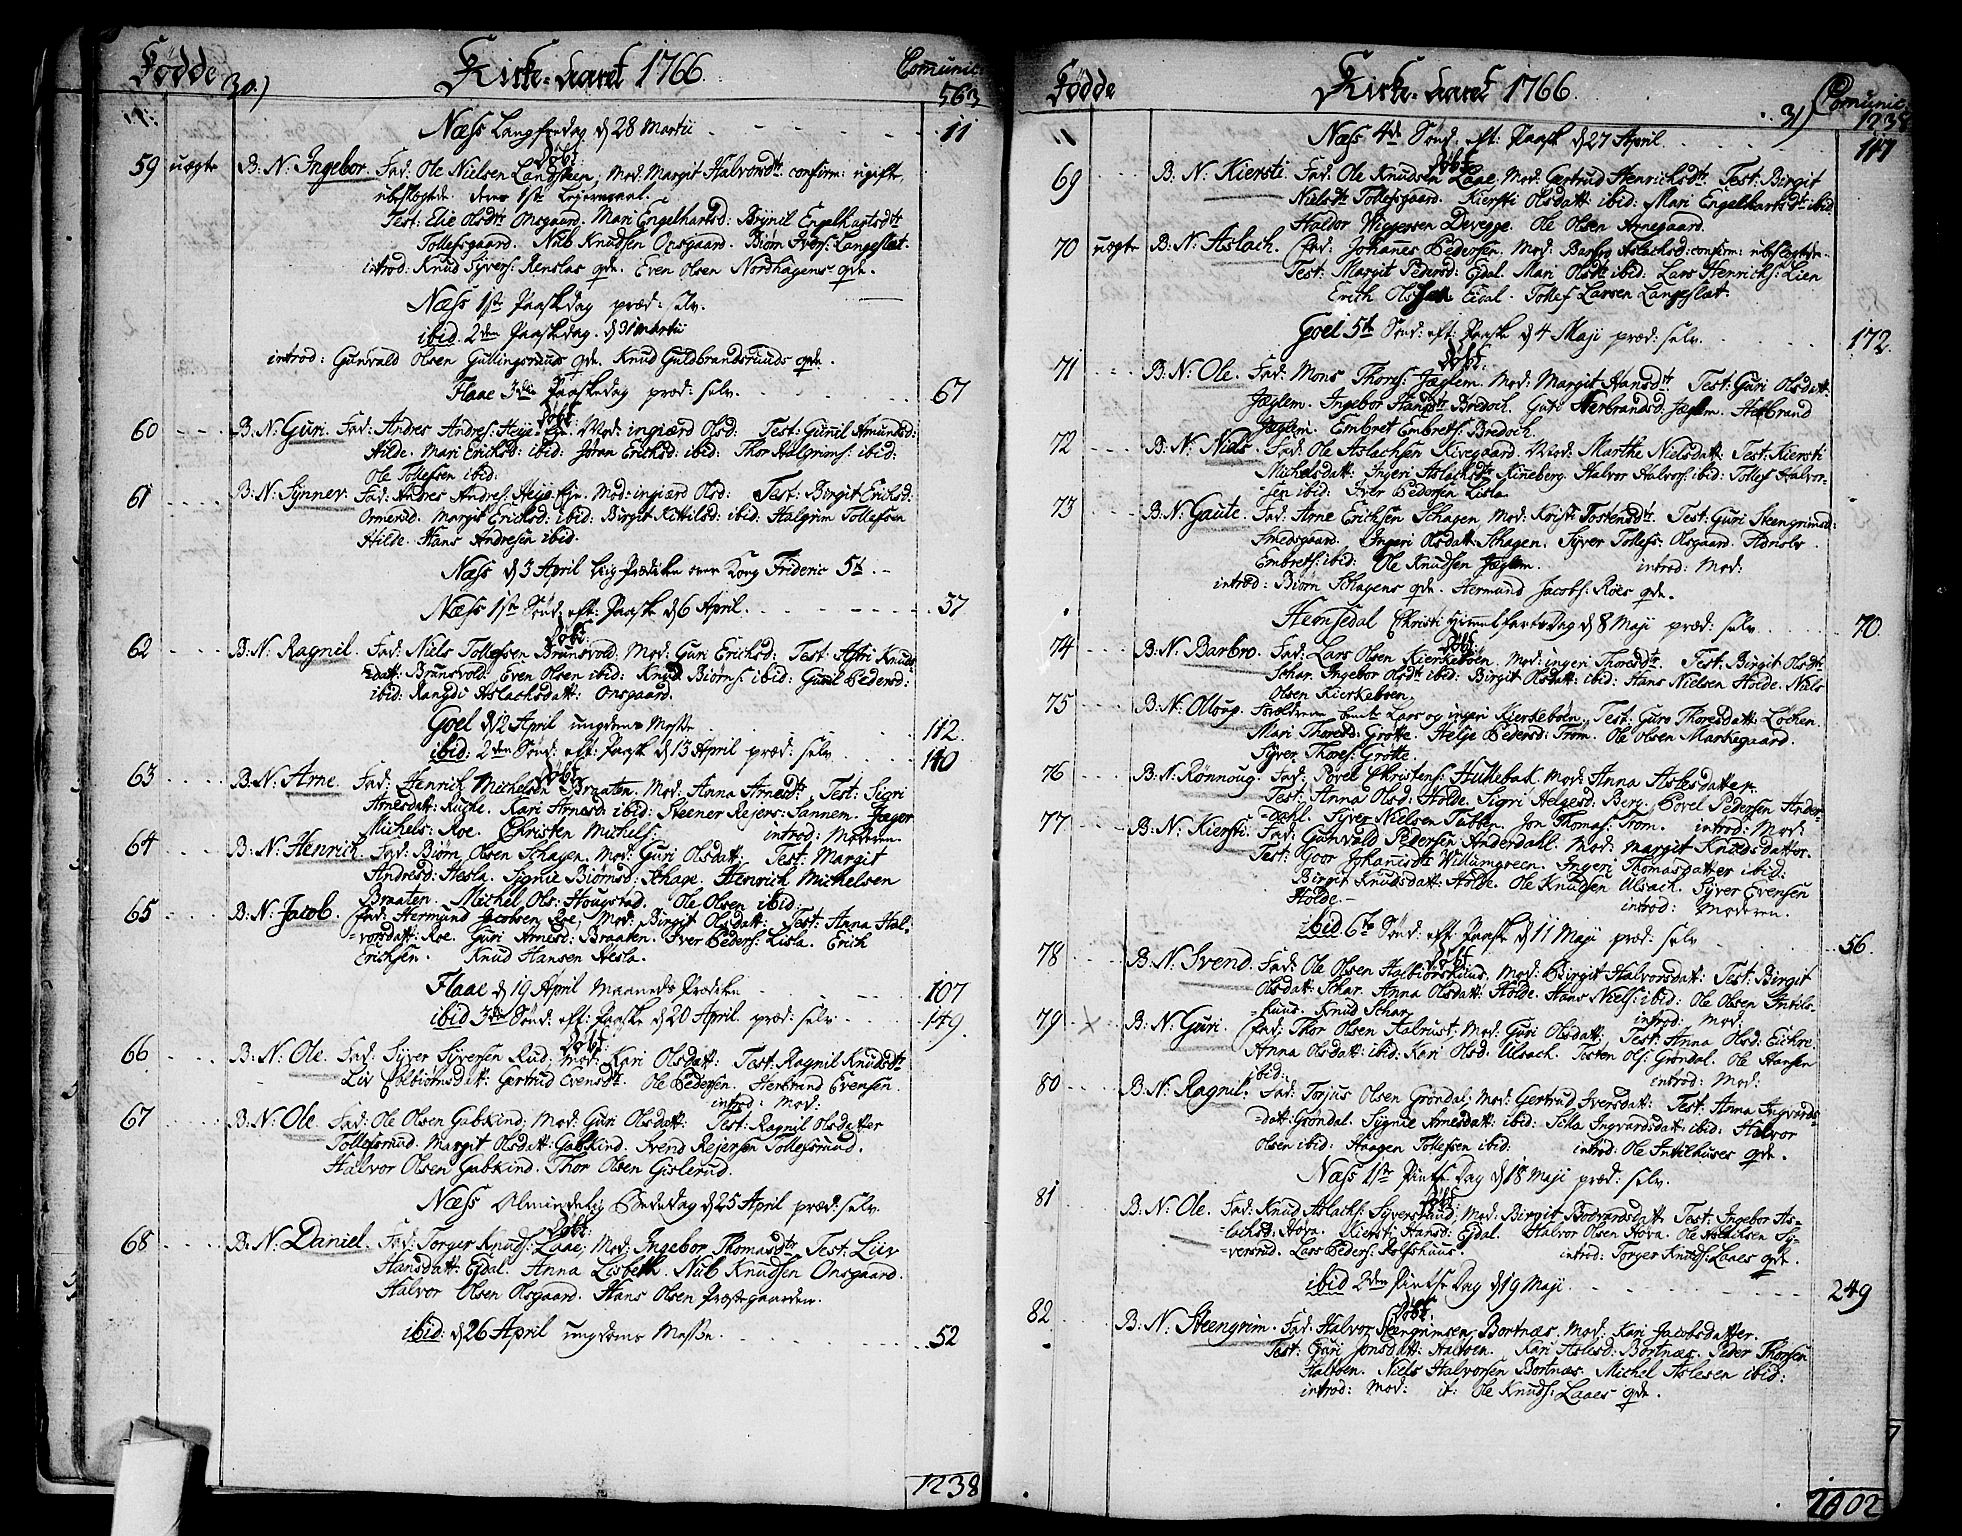 Fødde 30.) Kirke-Aaret 1766. Comunic:
563
Næss Langfredag d 28 Martii 11
Døbt:
59 uægte B. N. Ingebor. Fad: Ole Nielsen Langslein, Mod: Margit Halvorsdtr confirm: ugifte,
ubeslegtede. deres 1ste Leiermaal.
Test: Elie Olsdtr Onsgaard. Mari Engelhartsd: Brynil Engelhartsdtr
Tollefsgaard. Nub Knudsen Onsgaard. Biørn Ivers: Langeslet.
introd: Knud Syvers: Renslos qde. Even Olsen Nordhagens qde.
Næss 1ste Paaskedag præd: slv.
ibid 2den Paaskdag. d 31 Martii
introd: Gunvald Olsen Gullingsruds qde. Knud Guldbrandsruuds qde.
Flaae 3die Paaskedag præd: selv. 67
Døbt.
60 B. N: Guri. Fad: Andres Andres: Heye-Eje. Mod: ingiærd Olsd: Test: Gunil Amundsd:
Hilde. Mari Ericksd: ibid: Jøran Ericksd: ibid: Thor Halgrims: ibid:
Ole Tollefsen ibid:
61 B. N: Synnev. Fad: Andres Andres: Heye-Eje. Mod: ingiærd Olsd: Test: Birgit Ericksd:
Ormersd. Margit Ericksd: ibid: Birgit Kittilsd: ibid. Halgrim Tollefsen
Hilde. Hans Andresen ibid.
Næss d 3 April Liig-Prædiken over Kong Frideric 5te.
Næss 1ste Sønd: eft: Paask d 6 April. 57
Døbt:
62 B. N: Ragnil. Fad: Niels Tollefsen Brunsvold, Mod: Guri Ericksd: Test: Astri Knuds-
datt: Brunsvold. Even Olsen ibid: Knud Biørns: ibid: Gunil Pedersd:
ibid: Rangdi Aslachsdatt: Onsgaard.
Goel d 12 April ungdoms Messe 112.
ibid: 2den Sønd: eft: Paask d 13 April præd: selv 140
Døbt.
63 B. N: Arne. Fad: Henrich Michelsen Braaten. Mod: Anna Arnesdtr Test: Sigri
Arnesdatt: Rughe. Kari Arnesd: ibid: Steener Rejers: Sannem. Jæger
Michels: Roe. Christen Michels: introd: Moderen.
64 B. N: Henrich. Fad: Biørn Olsen Schagen. Mod: Guri Olsdatt: Test: Margit
Andresd: Hesla. Signie Biørnsd: Schage. Henrich Michelsen
Braaten. Michel Ols: Hougstad. Ole Olsen ibid:
65 B. N: Jacob. Fad: Hermund Jacobsen Roe, Mod: Birgit Olsdatt: Test: Anna Hal-
vorsdatt: Roe. Guri Arnesd: Braaten. Iver Peders: Lisla. Erich
Erichsen. Knud Hansen Hesla.
Flaae d 19 April Maaneds Prædiken 107
ibid 3die Sønd: eft: Paaske d 20 April. præd: selv 149.
Døbt:
66. B. N. Ole. Fad: Syver Syversen Rud, Mod: Kari Olsdatt: Test: Ragnil Knudsdtr
Liv Colbiørnsdatt: Gærtrud Evensdtr. Ole Pedersen. Herbrand Evensen.
introd: Mod:
67 B. N: Ole. Fad: Ole Olsen Gabkind, Mod: Guri Olsdatt: Test: Ragnil Olsdatter
Tollefsrud. Margit Olsdatt: Gabkind. Svend Rejersen Tollefsruud.
Halvor Olsen Gabkind. Thor Olsen Gislerud.
Næss Almindelig Bededag d 25 April præd: selv
Døbt:
68 B. N: Daniel. Fad: Torger Knuds: Laae, Mod: Ingebor Thomasdtr Test: Liv
Hansdatt: Ejdal. Anna Lisbeth. Nub Knudsen Onsgaard.
Halvor Olsen Olsgaard. Hans Olsen Præstegaarden.
ibid: d 26 April ungdoms Messe. 52
1238
Fødde Kirke-Aaret 1766. 31) Comunic:
1238
Næss 4de Sønd: eft: Paask d 27 April 117
Døbt
69 B. N: Kiersti. Fad: Ole Knudsen Laae. Mod: Gærtrud Henrichsdtr Test: Birgit
Nielsdtr Tollefsgaard. Kiersti Olsdatt: ibid: Mari Engelhartsdtr ibid
Haldor Wiggersen Devegge. Ole Olsen Arnegaard.
70 uægte B. N: Aslach. Fad: Johannes Pedersen. Mod: Barbro Aslachsd: confirm: ubeslegtede.
Test: Margit Pedersd: Ejdal. Mari Olsdtr ibid: Lars Henrichs: Lien
Erich Olssen Eidal. Tollef Larsen Langeslet.
Goel 5te Sønd: eft: Paask d 4 Maji præd: selv. 172
Døbt:
71 B. N: Ole. Fad: Mons Thores: Jæglem. Mod: Margit Hansdtr Test: Guri Olsdatt:
Jæglem. Ingebor Hansdtr Bredoch. Guri Herbrandsd: Jæglem. Herbrand
Jæglem. Embret Embrets: Bredoch.
72 B. N: Niels. Fad: Ole Aslachsen Kivegaard. Mod: Marthe Nielsdatt: Test: Kiersti
Michelsdatt: Ingeri Aslachsdtr Kinneberg. Halvor Halvors: ibid: Tollef Halvor-
sen ibid: Iver Pedersen Lisla.
73 B. N: Gaute. Fad: Arne Erichsen Schagen, Mod: Kristi Tostensdtr Test: Guri Steengrimsd:
Smedsgaard. Ingeri Olsdatt: Schagen. Syver Tollefs: Olsgaard.
Embrets: ibid: Ole Knudsen Jæglem. introd: Mod:
introd: Biørn Schagens qde. Hermund Jacobs: Roes qde.
Hemsedal Christi Himmelfarts Dag d 8 Maji præd: selv 70.
Døbt:
74 B. N: Barbro. Fad: Lars Olsen Kierkeboen. Mod: ingeri Thoresdtr Test: Birgit Olsdtr
Schar. Ingebor Olsdtr ibid: Birgit Olsdatt: ibid: Hans Nielsen Holde. Niels
Olsen Kierkeboen.
75 B. N: Olloug. Forældrene bemte Lars og ingeri Kierkeboen. Test: Guro Thoresdatt: Løchen.
Mari Thoresd: Grøtte. Helje Pedersd: Trøm. Ole Olsen Markegaard.
Syver Thores: Grøtte.
76 B. N: Rønnoug. Fad: Povel Christens: Hulkebak, Mod: Anna Aslesdatter.
Test: Anna Olsd: Holde. Sigri Helgesd: Berg. Povel Pedersen Ander-
dahl. Syver Nielsen Tubben. Jon Thomas: Trøm. introd: Mod:
77 B. N: Kiersti. Fad: Gunvald Pedersen Anderdahl. Mod: Margit Knudsdatter.
Test: Goor Johanisdtr Willumgreen. Ingeri Thomasdatter ibid:
Birgit Knudsdatt: Holde. Ole Knudsen Ulsach. Syver Evensen
Holde. introd: Moderen.
ibid: 6te Sønd: eft: Paask d 11 Maji præd: selv 56.
Døbt
78 B. N: Svend. Fad: Ole Olsen Halbiørshuus, Mod: Birgit Halvorsdatt: Test: Birgit
Olsdatt: Schar. Anna Olsdatt: Holde. Hans Niels: ibid: Ole Olsen Intils-
huus. Knud Schar. introd: Mod:
79 X B. N: Guri. Fad: Thor Olsen Halrust, Mod: Guri Olsdatt: Test: Anna Olsd: Eichre.
Anna Olsdatt: ibid: Kari Olsd: Ulsach. Tosten Ols: Grøndal. Ole Hansen
ibid: introd: Mod:
80 B. N: Ragnil. Fad: Torjus Olsen Grøndal, Mod: Gertrud Iversdatt: Test: Anna Ingvards-
datt: Grøndal. Signie Arnesdatt: ibid: Sila Ingvardsdatt: ibid: Halvor
Olsen ibid: Haagen Tollefsen ibid: introd: Ole Intilhuses qde.
Næss 1ste Pintse Dag d 18 Maji præd: selv.
Døbt
81 B. N: Ole. Fad: Knud Aslachs: Syversrud, Mod: Birgit Bodvardsdatt: Test: Ingebor As-
lachsd: Hova. Kiersti Hansd: Ejdal. Halvor Olsen Hova. Ole Aslachsen Sy-
versrud. Lars Peders: Rolfshuus. introd: Torger Knuds: Laaes qde.
ibid 2den Pintse Dag d 19 Maji 249
Døbt:
82 B. N: Steengrim. Fad: Halvor Steengrimsen Bortnæs, Mod: Kari Jacobsdatter.
Test: Guri Jonsdatt: Haltoen. Kari Aslesd: Bortnæs. Peder Thorsen
Haltoen. Niels Halvorsen Bortnæs. Michel Aslesen ibid:
introd: Mod: it: Ole Knuds: Laaes qde.
1902